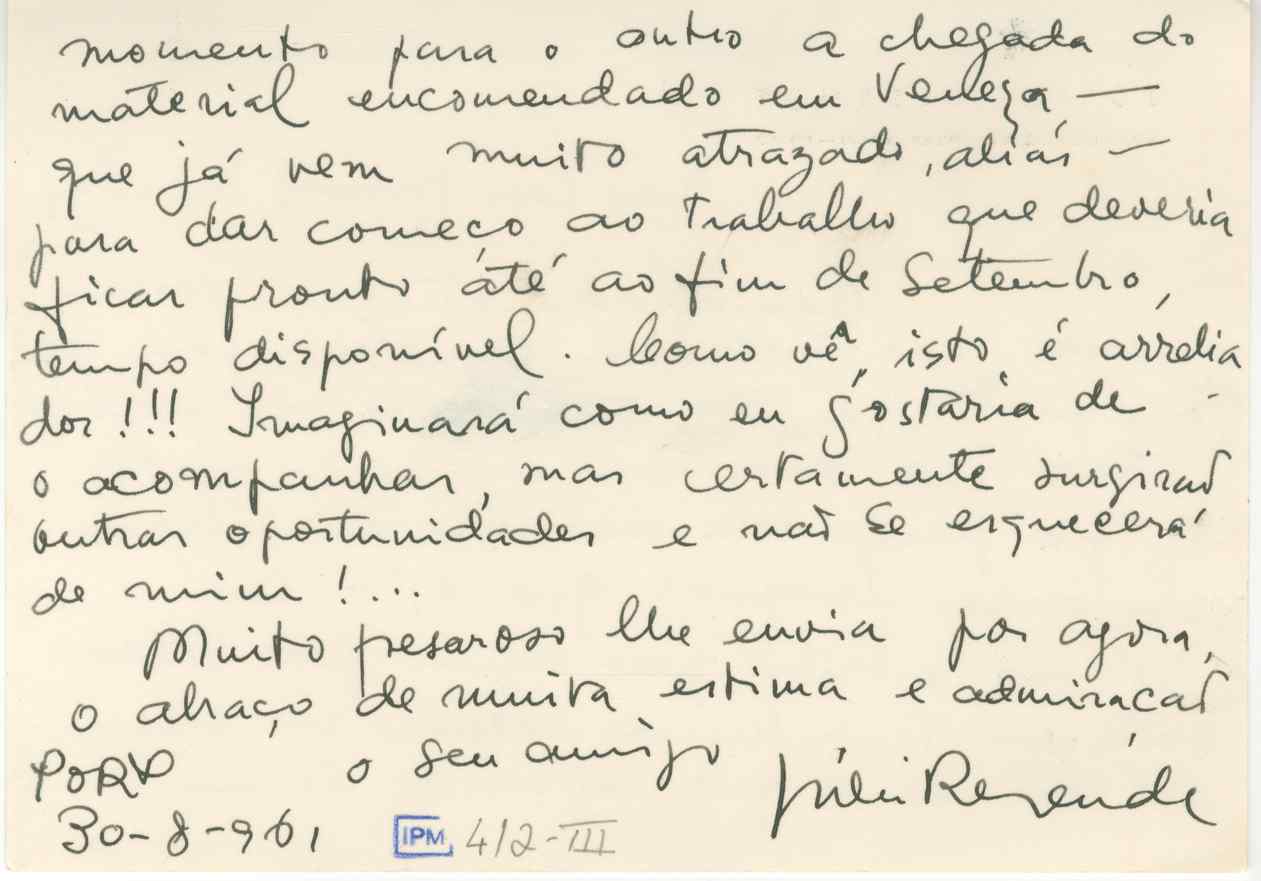 momento para o outro a chegada do
material encomendado em Veneza —
que já vem muito atrazado, aliás —
para dar começo ao trabalho que deveria
ficar pronto até ao fim de Setembro,
tempo disponível. Como vê, isto é arrelia
dor!!! Imaginará como eu gostaria de
o acompanhar, mas certamente surgirão
outras oportunidades e não se esquecerá
de mim!...
Muito pesaroso lhe envia por agora,
o abraço de muita estima e admiração
o seu amigo Júlio Resende
PORTO
30-8-961
IPM 4/2-III